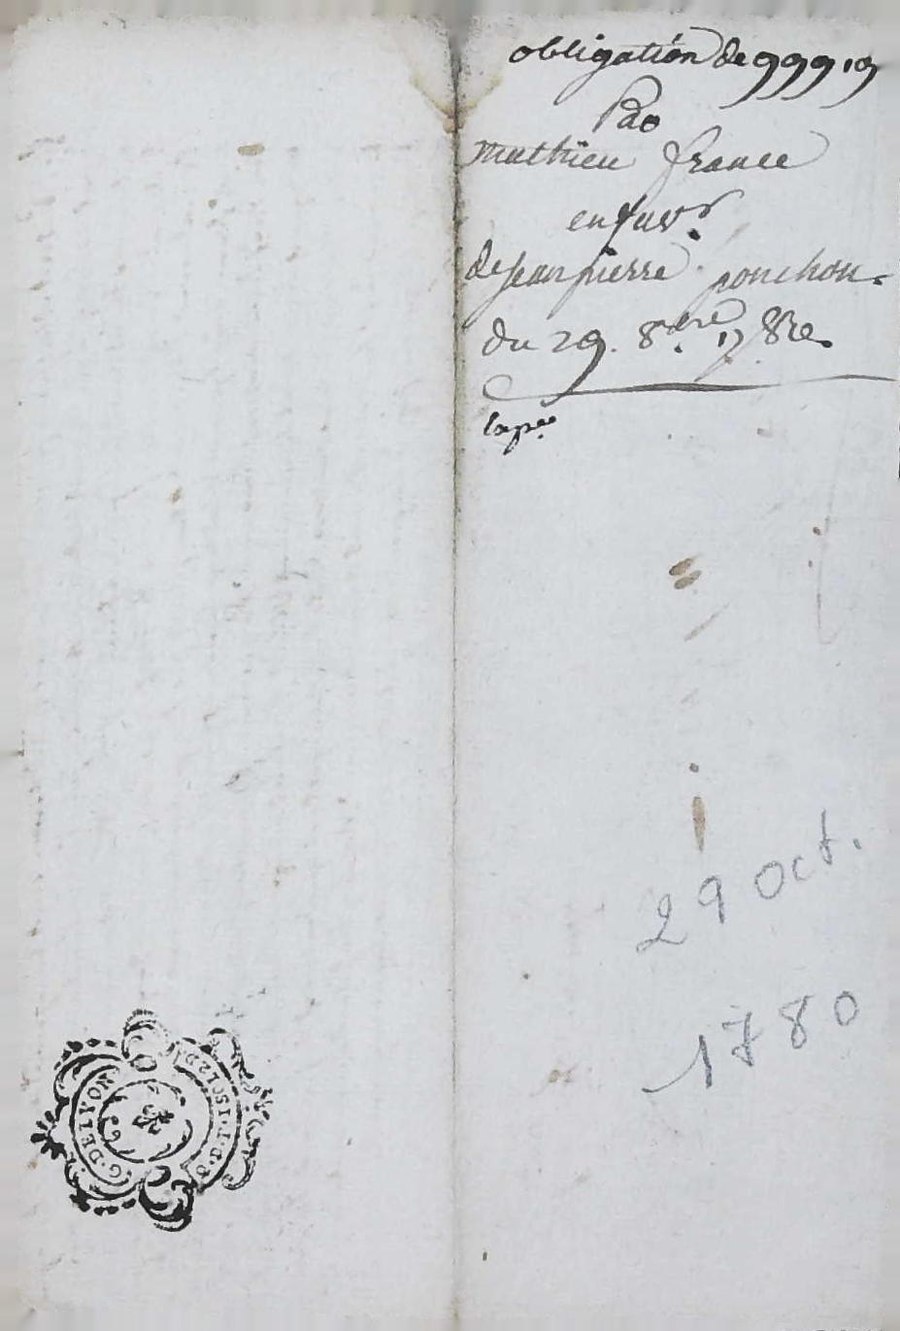 obligation de 999 19
Par
mathieu france
en fav.r
de Jean pierre ponchon.
du 29. 8bre. 1780.
Expée
29 oct.
1780
G. DE LYON